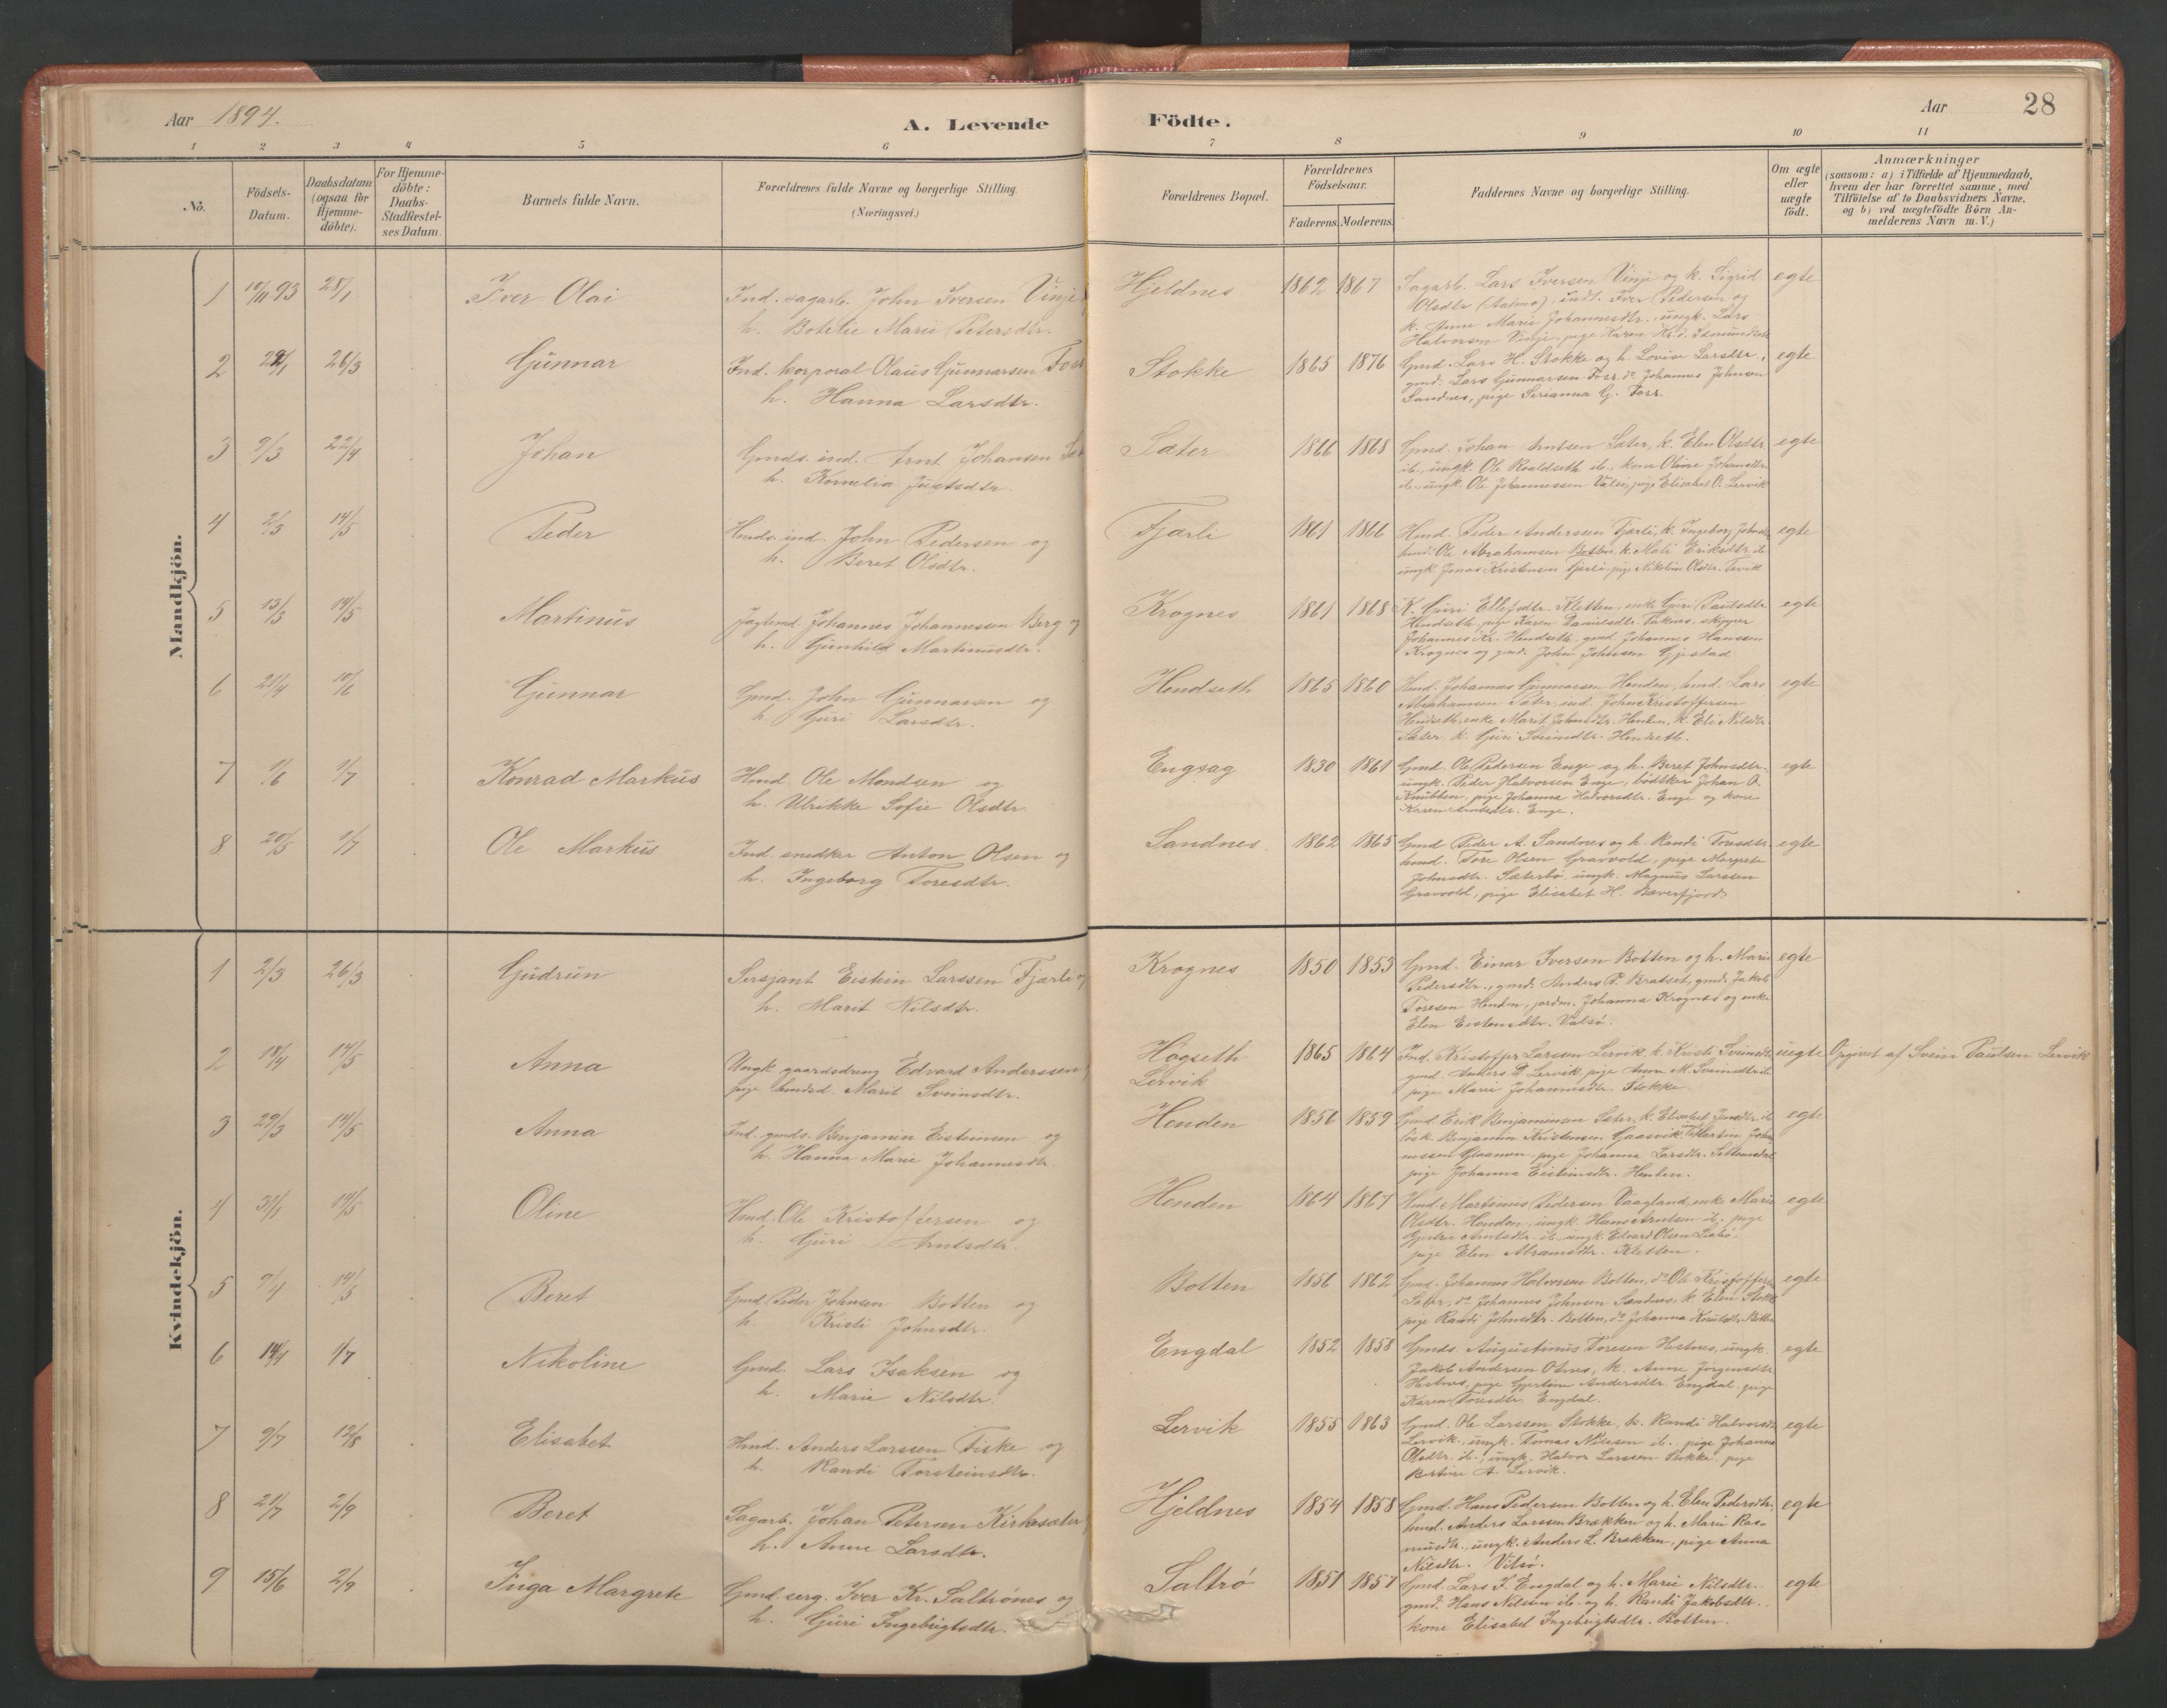 Aar 1894.
A. Levende Födte.
Aar
28
1 2 3 4 5 6 7 8 9 10 11
No.
Födsels-Datum.
Daabsdatum (ogsaa for Hjemme-döbte).
For Hjemme-döbte: Daabs-Stadfæstel-ses Datum.
Barnets fulde Navn.
Forældrenes fulde Navne og borgerlige Stilling.
(Næringsvei.)
Forældrenes Bopæl.
Forældrenes Födselsaar.
Faderens. Moderens.
Faddernes Navne og borgerlige Stilling.
Om ægte eller uægte födt.
Anmærkninger
(saasom: a) i Tilfælde af Hjemmedaab,
hvem der har forrettet samme, med
Tilföielse af to Daabsvidners Navne.
og b) ved uægtefödte Börn An-
melderens Navn m. V.)
Mandkjön.
1 10/11 93 28/1 Iver Olai Ind. sagarb. John Iversen Vinje
h. Botelie Marie Petersdtr.
Hjeldnes 1862 1867 Sagarb. Lars Iversen Vinje og k. Sigrid egte
Olsdtr (Aalmo), indt. Iver Pedersen og
k. Anne Marie Johannesdtr., ungk. Lars
Halvorsen Vinje, pige Karen Kr.d.
2 26/3 Gunnar Ind. korporal Olaus Gunnarsen Foss
h. Hanna Larsdtr.
Stokke 1865 1876 Gmd. Lars H. Stokke og h. Lovise Larsdtr., egte
gmd. Lars Gunnarsen Foss, do Johannes Johnsen
Sandnes, pige Serianna G. Foss.
3 9/3 22/4 Johan Gmds. ind. Arnt Johansen
h. Kornelia Justsdtr.
Sæter 1866 1868 Gmd. Johan Arntsen Sæter, k. Elen Olsdtr egte
ib., ungk. Ole Roaldseth ib., kone Oline Johansdtr.
ib., ungk. Ole Johannessen Valsö, pige Elisabet O. Lervik
4 2/3 14/5 Peder Hmds. ind. John Pedersen og
h. Beret Olsdtr.
Fjærli 1861 1866 Hmd. Peder Anderssen Fjærli, k. Ingeborg egte
hmd. Ole Abrahamsen Botten, k. Mali Eriksdtr. ib.
ungk. Jonas Kristensen Fjærli, pige Nikoline Olsdtr. Lervik
5 13/3 14/5 Martinus Johannes Johannessen Berg og
h. Gunhild Martinusdtr.
Krognes 1861 1868 K. Guri Ellefsdtr. Kletten, enke Guri Paulsdtr. egte
Hendseth, pige Karen Danielsdtr. skipper
Johannes Kr. Hendseth, gmd. Johannes Hanssen
Krognes og gmd. John Johnsen Gjøstad
6 21/4 10/6 Gunnar Gmd. John Gunnarsen og
h. Guri Larsdtr.
Hendseth 1865 1860 Hmd. Johannes Gunnarsen Henden, hmd. Lars egte
Abrahamsen Sæter, ind. John Kristoffersen
Hendseth, enke Marit Johnsdtr. Henden, k. Eli Nilsdtr.
Sæter, k. Guri Sveinsdtr. Hendseth.
7 1/6 1/7 Konrad Markus Hmd. Ole Mondsen og
h. Ulrikke Sofie Olsdtr
Engsag 1830 1861 Gmd. Ole Pedersen Enge og h. Beret Johnsdtr., egte
ungk. Peder Halvorsen Enge, bödtker Johan O.
Knubben, pige Johanna Halvorsdtr. Enge og kone
Karen Enge.
8 20/5 1/7 Ole Markus Ind. snedker Anton Olsen og
h. Ingeborg Toresdtr.
Sandnes 1862 1865 Gmd Peder A. Sandnes og h. Randi Toresdtr. egte
hmd. Tore Olsen Gravvold, pige Margrete
Johnsdtr. Sæterbö, ungk. Magnus Larssen
Gravvold, pige Elisabet H. Bæverfjord
Kvindekjön.
1 2/3 26/3 Gudrun Sersjant Eistein Larssen Fjærli og
h. Marit Nilsdtr.
Krognes 1850 1853 Gmd. Einar Iversen Botten og h. Marie egte
Pedersdtr., gmd. Anders P. Bratset, gmd. Jakob
Toresen Henden, jordm. Johanna Krognes og enke
Elen Eisteinsdtr. Valsö.
2 18/4 14/5 Anna Ungk. gaardsdreng Edvard Anderssen
pige Marit Sveinsdtr.
Högseth
Lervik
1865 1864 Ind. Kristoffer Larssen Lervik, k. Kristi Sveinsdtr. uegte Opgivet af Svein Paulsen Lervik
gmd. Anders Lervik, pige Anne M. Sveinsdtr ib
pige Marie Johannesdtr. Stokke
3 29/3 14/5 Anna Ind. gmds. Benjamin Eisteinsen og
h. Hanna Marie Johannesdtr.
Henden 1856 1859 Gmd. Erik Benjaminsen Sæter, k. Elisabet ib. egte
Benjamin Kristensen Gaasvik, Martin Johan-
nessen Glasmon, pige Johanna Larsdtr. Settemsdal
pige Johanna Eisteinsdtr. Henden.
4 31/1 14/5 Oline Hmd. Ole Kristoffersen og
h. Guri Arntsdtr.
Henden 1864 1867 Hmd. Martinus Pedersen Vaagland, enke Marie egte
Olsdtr. Henden, ungk. Hans Arntsen ib. pige
Gjertrue Arntsdtr. ib. ungk. Edvard Olsen
pige Elen Abramsdtr. Kletten.
5 9/4 14/5 Beret Gmd. Peder Johnsen Botten og
h. Kristi Johnsdtr.
Botten 1856 1862 Gmd. Johannes Halvorsen Botten, do Ole Kristoffers. egte
Sæter, do Johannes Johnsen Sandnes, k. Elen Stokke
pige Randi Johnsdtr. Botten, do Johanna Knutsdtr. Botten
6 14/4 1/7 Nikoline Gmd. Lars Isaksen og
h. Marie Nilsdtr.
Engdal 1852 1858 Gmds. Augustinus Toresen Hestnes, ungk. egte
Jakob Andersen Otnes, k. Anne Jörgensdtr.
Hestnes, pige Gjertine Andersdtr. Engdal, pige
Karen Toresdtr. Engdal.
7 9/7 12/8 Elisabet Hmd. Anders Larssen Fiske og
h. Randi Torsteinsdtr.
Lervik 1855 1863 Gmd. Ole Larssen Stokke, k. Randi Halvorsdtr. egte
Lervik, ungk. Tomas Nilssen ib., pige Johanna
Olsdtr. ib., ungk. Halvor Larssen Stokke, pige
Bertine A. Lervik.
8 21/7 2/9 Beret Sagarb. Johan Petersen Kirkesæter
h. Anne Larsdtr.
Hjeldnes 1854 1858 Gmd. Hans Pedersen Botten og h. Elen Pedersdtr. egte
hmd. Anders Larssen Brækken og h. Marie Ras-
musdtr., ungk. Anders L. Brækken, pige Anna
Nilsdtr. Vitsö.
9 15/6 2/9 Inga Margrete Gmd. serg. Iver Kr. Saltrönes og
h. Guri Ingebrigtsdtr.
Saltrö 1851 1857 Gmd. Lars I. Engdal og h. Marie Nilsdtr. egte
gmd. Hans Nilsen ib. og h. Randi Jakobsdtr.
kone Elisabet Ingebrigtsdtr. Botten.